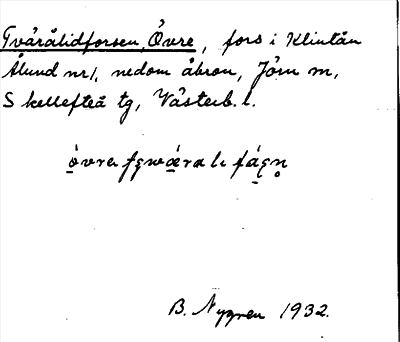 Tvärålidforsen, Övre, fors i Klintån
Ålund nr1, nedom åbron, Jörn sn,
Skellefteå tg, Västerb. l.
B. Nygren 1932.